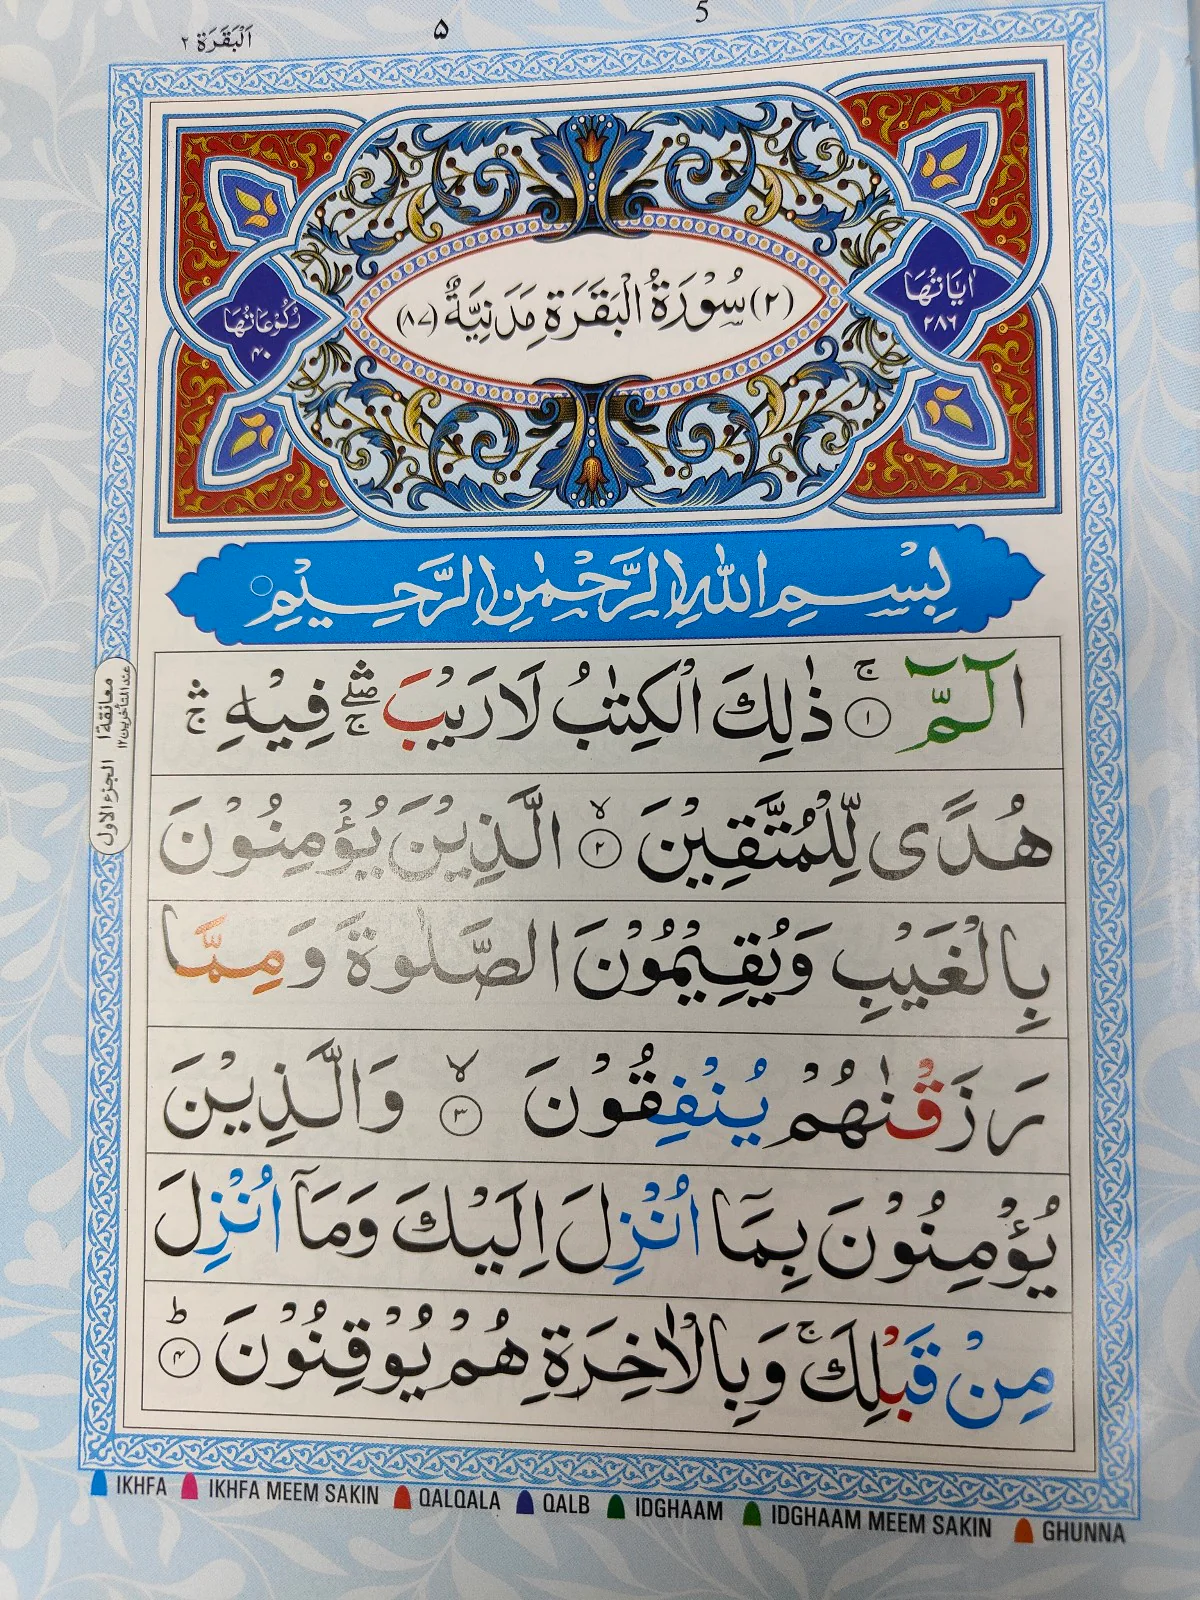 اَلْبَقَرَة ٢
۵
5
اٰيَاتُهَا
٢٨٦
(٢) سُوْرَةُ الْبَقَرَةِ مَدَنِيَّةٌ (٨٧)
رُكُوْعَاتُهَا
٤٠
بِسْمِ اللّٰهِ الرَّحْمٰنِ الرَّحِيْمِ
الٓمّٓ ۚ ١ ذٰلِكَ الْكِتٰبُ لَا رَيْبَ ۛۖۚ فِيْهِ ۛۚ
هُدًى لِّلْمُتَّقِيْنَ ۙ ٢ الَّذِيْنَ يُؤْمِنُوْنَ
بِالْغَيْبِ وَيُقِيْمُوْنَ الصَّلٰوةَ وَمِمَّا
رَزَقْنٰهُمْ يُنْفِقُوْنَ ۙ ٣ وَالَّذِيْنَ
يُؤْمِنُوْنَ بِمَآ اُنْزِلَ اِلَيْكَ وَمَآ اُنْزِلَ
مِنْ قَبْلِكَ ۚ وَبِالْاٰخِرَةِ هُمْ يُوْقِنُوْنَ ؕ ۴
معانقة ١
عند المتأخرين ١٢
الجزء الاول
IKHFA IKHFA MEEM SAKIN QALQALA QALB IDGHAAM IDGHAAM MEEM SAKIN GHUNNA